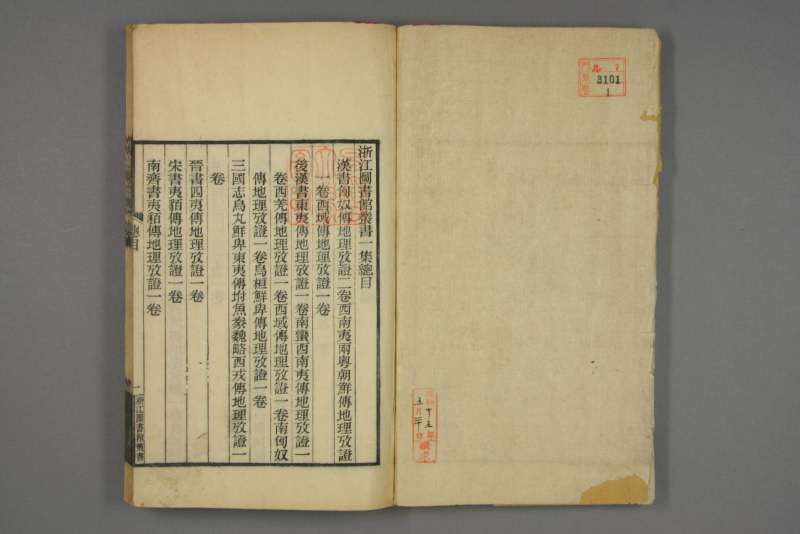 3101
1
浙江圖書館叢書一集總目
漢書匈奴傳地理攷證二卷西南夷兩粵朝鮮傳地理攷證
一卷西域傳地理攷證一卷
後漢書東夷傳地理攷證一卷南蠻西南夷傳地理攷證一
卷西羌傳地理攷證一卷西域傳地理攷證一卷南匈奴
傳地理攷證一卷烏桓鮮卑傳地理攷證一卷
三國志烏丸鮮卑東夷傳坿魚豢魏略西戎傳地理攷證一
卷
晉書四夷傳地理攷證一卷
宋書夷貊傳地理攷證一卷
南齊書夷貊傳地理攷證一卷
總目
一
浙江圖書館叢書